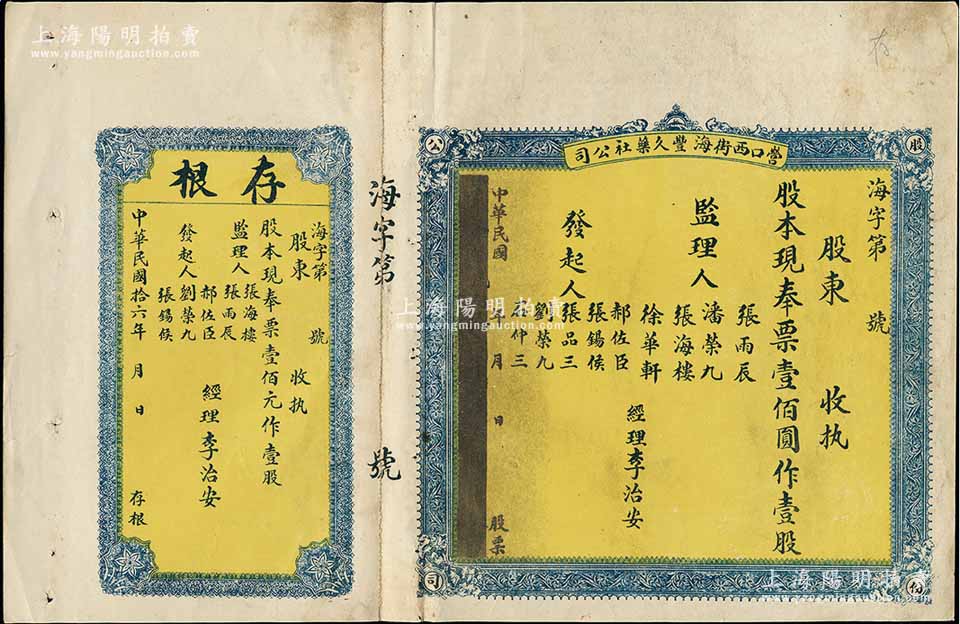 上海陽明拍賣
www.yangmingauction.com
營口西街海豐久藥社公司
股
份
公
司
海字第 號
股東 收执
股本現奉票壹佰圓作壹股
監理人
張雨辰
潘榮九
張海樓
徐華軒
發起人
郝佐臣
張錫侯
張品三
劉榮九
仲三
經理李治安
中華民國 年 月 日 股票
海字第 號
存根
海字第 號
股東 收执
股本現奉票壹佰元作壹股
監理人
張海樓
張雨辰
發起人
郝佐臣
劉榮九
張錫侯
經理李治安
中華民國拾六年 月 日 存根
上海陽明拍賣
www.yangmingauction.com
上海陽明拍賣
www.yangmingauction.com